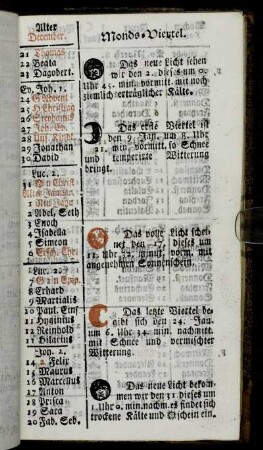 Alter
December.
21 Thomas
22 Beata
23 Dagobert.
Ev. Joh. 1.
24 G Advent
25 H Christtag
26 Stephanus
27 Joh. Ev.
28 Uns. Kindl.
29 Jonathan
30 David
Luc. 2.
1 Neu Jahr
2 Abel, Seth
3 Enoch
4 Isabella
5 Simeon
6 Ersch. Chr.
Luc. 2.
8 Erhard
9 Martialis
10 Paul. Einf
11 Hyginius
12 Reinhold
13 Hilarius
Joh. 2.
14 2. Felix
15 Maurus
16 Marcellus
17 Anton
18 Prisca
19 Sara
20 Fab. Seb.
Monds-Viertel.
Das neue Licht sehen
wir den 2. dieses um 00
Uhr 45. min. vormitt. mit noch
ziemlich erträglicher Kälte.
Das erste Viertel ist
den 9. Jan. um 8. Uhr
21. min. vormitt. so Schnee
und temperirte Witterung
bringt.
Das volle Licht schei-
net den 17. dieses um
11. Uhr 32. minut. vorm. mit
angenehmen Sonnenschein.
Das letzte Viertel be-
gibt sich den 24. Jan.
um 6. Uhr 34. min. nachmitt.
mit Schnee und vermischter
Witterung.
Das neue Licht bekom-
men wir den 31 dieses um
1. Uhr 0. min. nachm. es findet sich
trockene Kälte und Oschein ein.